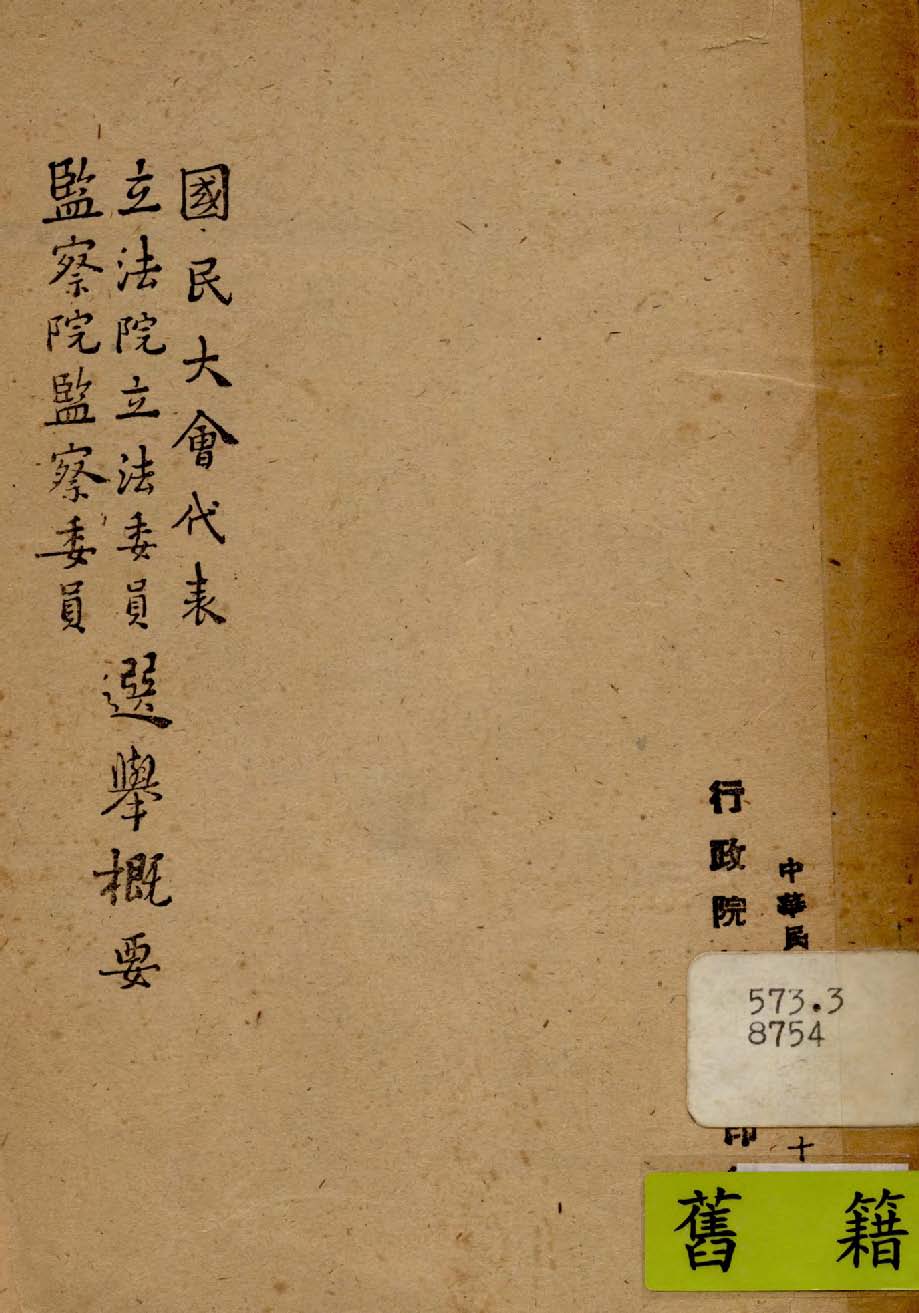 中華民
十
行政院
印
國民大會代表
立法院立法委員
監察院監察委員
選舉概要
573.3
8754
舊籍